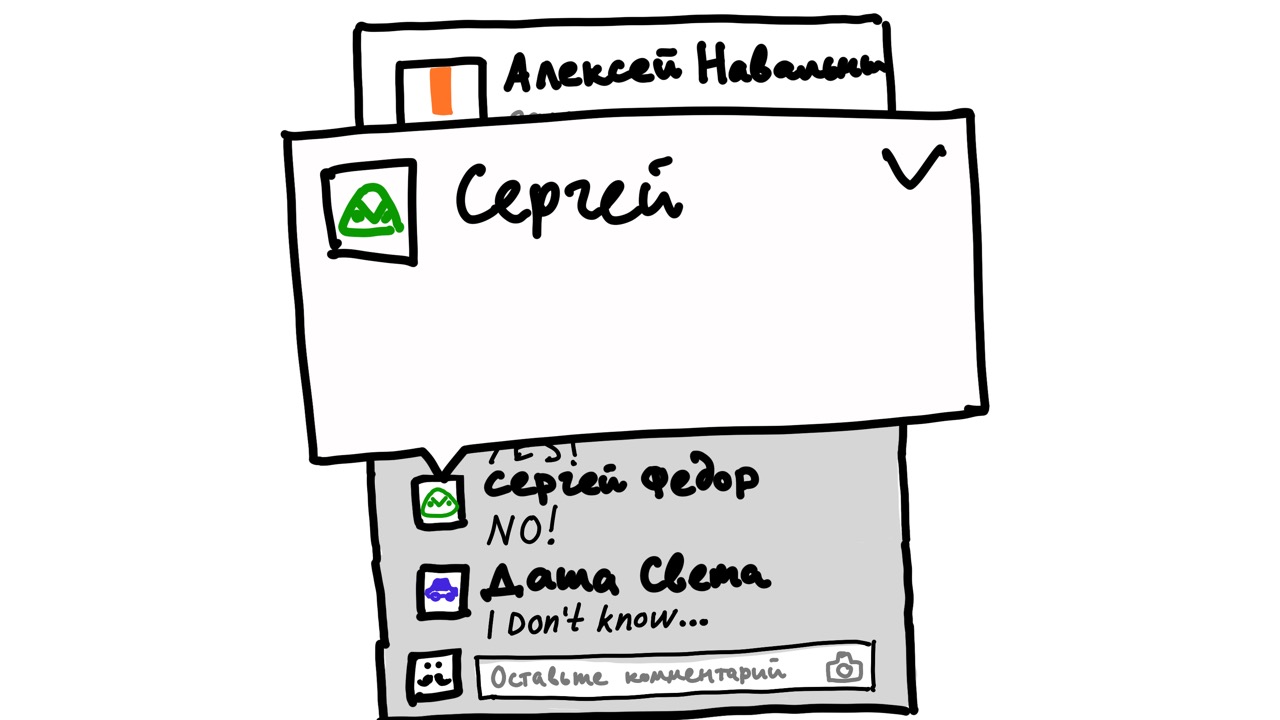 Алексей Навальны
Сергей
YES!
Сергей Федор
NO!
Даша Света
I Don't know...
Оставьте комментарий